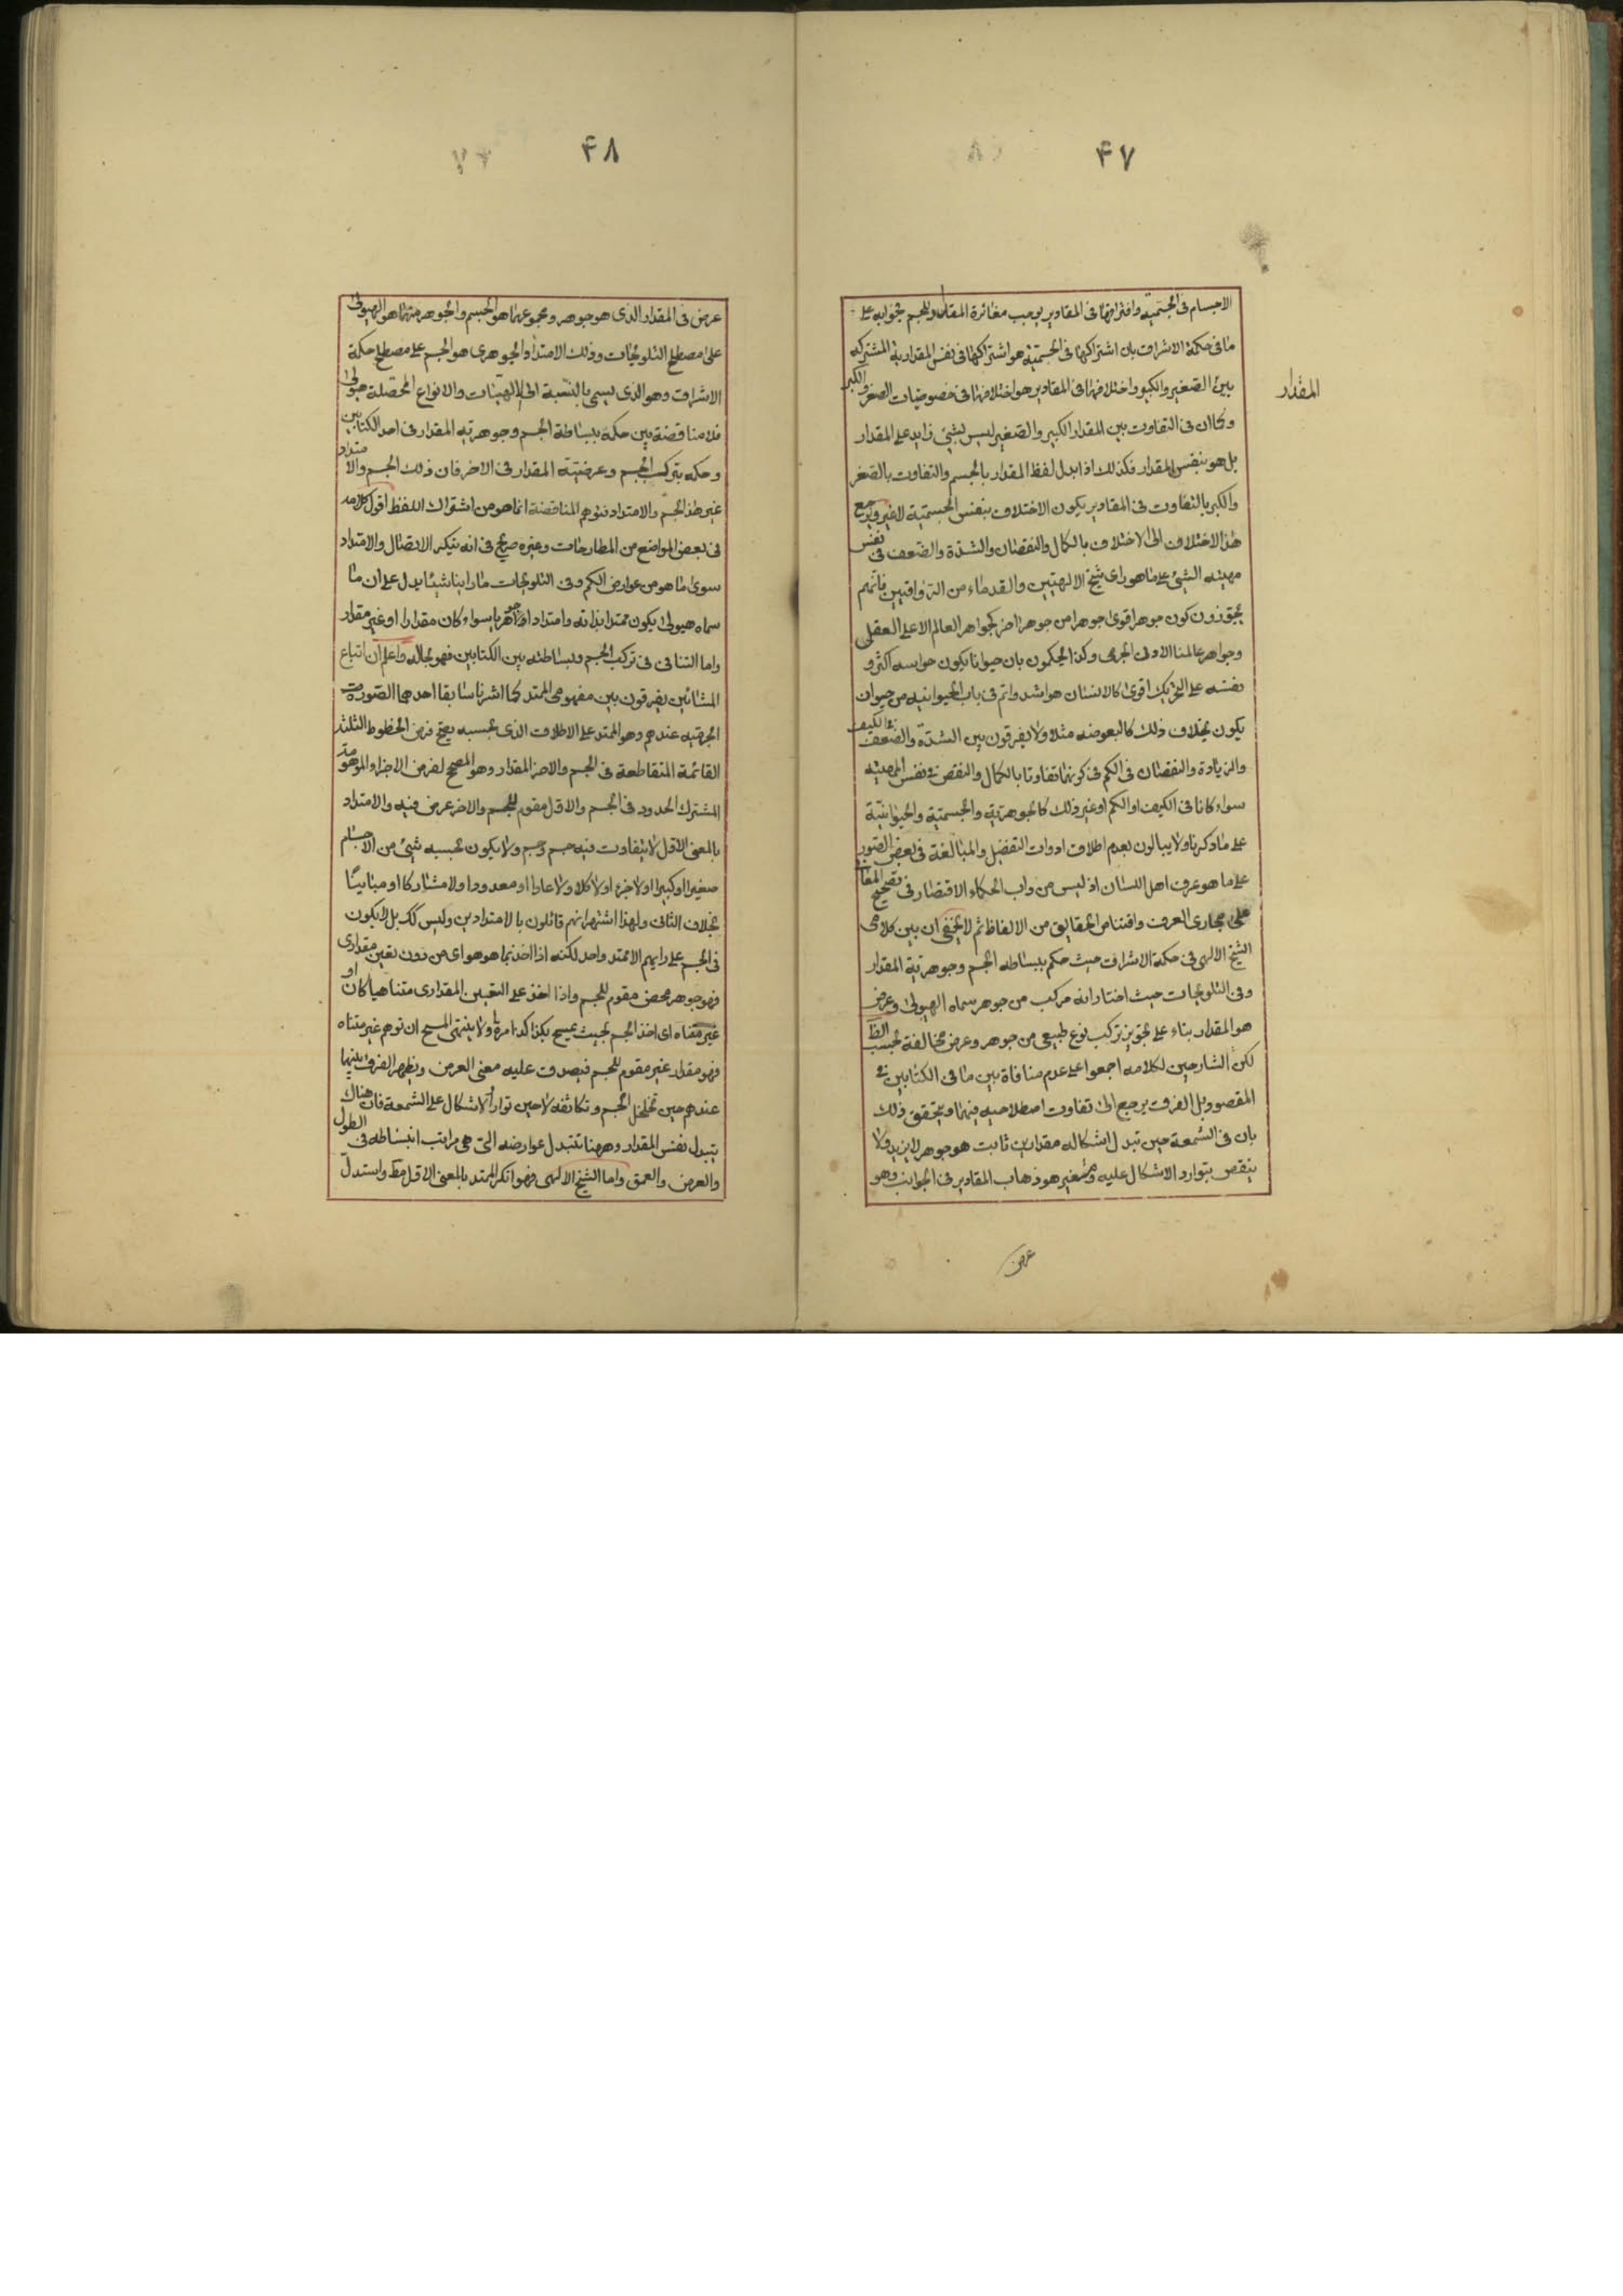 ۴۷
الاجسام فى الجسمية وافتراقها فى المقادير يوجب مغائرة المقدار للجسم فجوابه على
ما فى حكمة الاشراق بان اشتراكها فى الجسمية هو اشتراكها فى نفس المقدارية المشتركة
بين الصغير والكبير واختلافها فى المقادير هو اختلافها فى خصوصيات الصغر والكبر
وكما ان فى التفاوت بين المقدار الكبير والصغير ليس لشئ زايد على المقدار
بل هو بنفس المقدار فكذلك اذا بدل لفظ المقدار بالجسم والتفاوت بالصغر
والكبر بالتفاوت فى المقادير يكون الاختلاف بنفس الجسمية لا غير ويرجع
هذا الاختلاف الى الاختلاف بالكمال والنقصان والشدة والضعف فى نفس
مهيته الشئ على ما هو راى شيخ الالهيين والقدماء من الرواقيين فانهم
يجوزون كون جوهر اقوى جوهرا من جوهر اخر كجواهر العالم الاعلى العقلى
وجواهر عالمنا الادنى الجرمى وكذا يحكمون بان حيوانا يكون حواسه اكثر و
نفسه على التحريك اقوى كالانسان هو اشد واتم فى باب الحيوانيه من حيوان
يكون بخلاف ذلك كالبعوضه مثلا ولا يفرقون بين الشدة والضعف فى الكيف
والزيادة والنقصان فى الكم فى كونهما تفاوتا بالكمال والنقص فى نفس المهيته
سواء كانا فى الكيف او الكم او غير ذلك كالجوهرية والجسمية والحيوانية
على ما ذكرنا ولا يبالون بعدم اطلاق ادوات التفضيل والمبالغة فى بعض الصور
على ما هو عرف اهل اللسان اذ ليس من داب الحكماء الاقتصار فى تصحيح المعانى
على مجارى العرف واقتناص الحقايق من الالفاظ ثم لا يخفى ان بين كلامى
الشيخ الالهى فى حكمة الاشراق حيث حكم ببساطه الجسم وجوهرية المقدار
وفى التلويحات حيث اختار انه مركب من جوهر سماه الهيولى وعرض
هو المقدار بناء على تجويز تركب نوع طبيعى من جوهر وعرض مخالفة بحسب الظ
لكن الشارحين لكلامه اجمعوا على عدم منافاة بين ما فى الكتابين فى
المقصود بل الفرق يرجع الى تفاوت اصطلاحيه فيهما ويتحقق ذلك
بان فى الشمعة حين تبدل اشكاله مقدارين ثابت هو جوهر لا يزيد ولا
ينقص بتوارد الاشكال عليه ومتغير هو ذهاب المقادير فى الجوانب وهو
عرض
المقدار
۴۸
عرض فى المقدار الذى هو جوهر ومجموعهما هو الجسم والجوهر منهما هو الهيولى
على مصطلح التلويحات وذلك الامتداد الجوهرى هو الجسم على مصطلح حكمة
الاشراق وهو الذى يسمى بالنسبة الى الهيئات والانواع المحصلة هيولى
فلا مناقضة بين حكمه ببساطة الجسم وجوهرية المقدار فى احد الكتابين
وحكمه بتركب الجسم وعرضية المقدار فى الاخر فان ذلك الجسم والامتداد
غير هذا الجسم والامتداد فتوهم المناقضة انما هو من اشتراك اللفظ اقول كلامه
فى بعض المواضع من المطارحات وغيره صريح فى انه ينكر الاتصال والامتداد
سوى ما هو من عوارض الكم وفى التلويحات ما راينا شيئا يدل على ان ما
سماه هيولى يكون ممتدا بذاته وامتدادا جوهريا سواء كان مقدارا او غير مقدار
واما التنافى فى تركب الجسم وبساطته بين الكتابين فهو بحاله واعلم ان اتباع
المشائين يفرقون بين مفهومى الممتد كما اشرنا سابقا احدهما الصورة
الجرمية عندهم وهو الممتد على الاطلاق الذى بحسبه يصح فرض الخطوط الثلثة
القائمة المتقاطعة فى الجسم والاخر المقدار وهو المصحح لفرض الاجزاء الموهومة
المشترك الحدود فى الجسم والاول مقوم للجسم والاخر عرض فيه والامتداد
بالمعنى الاول لا يتفاوت فيه جسم وجسم ولا يكون بحسبه شئ من الاجسام
صغيرا او كبيرا او لا جزء او لا كلا ولا عادا او معدودا ولا مشاركا او مباينا
بخلاف الثانى ولهذا اشتهر انهم قائلون بالامتدادين وليس كك بل لا يكون
فى الجسم على رايهم الا ممتد واحد لكنه اذا اخذ بما هو هو اى من دون تعين مقدارى
فهو جوهر محض مقوم للجسم واذا اخذ على التعين المقدارى متناهيا كان او
غير متناه اى اخذ الجسم بحيث يمسح بكذا كذا مرة ولا ينتهى المسح ان توهم غير متناه
فهو مقدار غير مقوم للجسم فيصدق عليه معنى العرض ويظهر الفرق بينها
عندهم حين تخلخل الجسم وتكاثفه لا حين توارد الاشكال على الشمعة فان هناك
يتبدل نفس المقدار وههنا تتبدل عوارضه التى هى مراتب انبساطه فى الطول
والعرض والعمق واما الشيخ الالهى فهو انكر الممتد بالمعنى الاول فقط واستدل